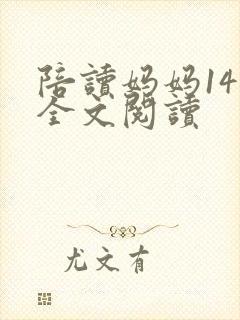 陪讀妈妈14
全文閱讀
尤文有